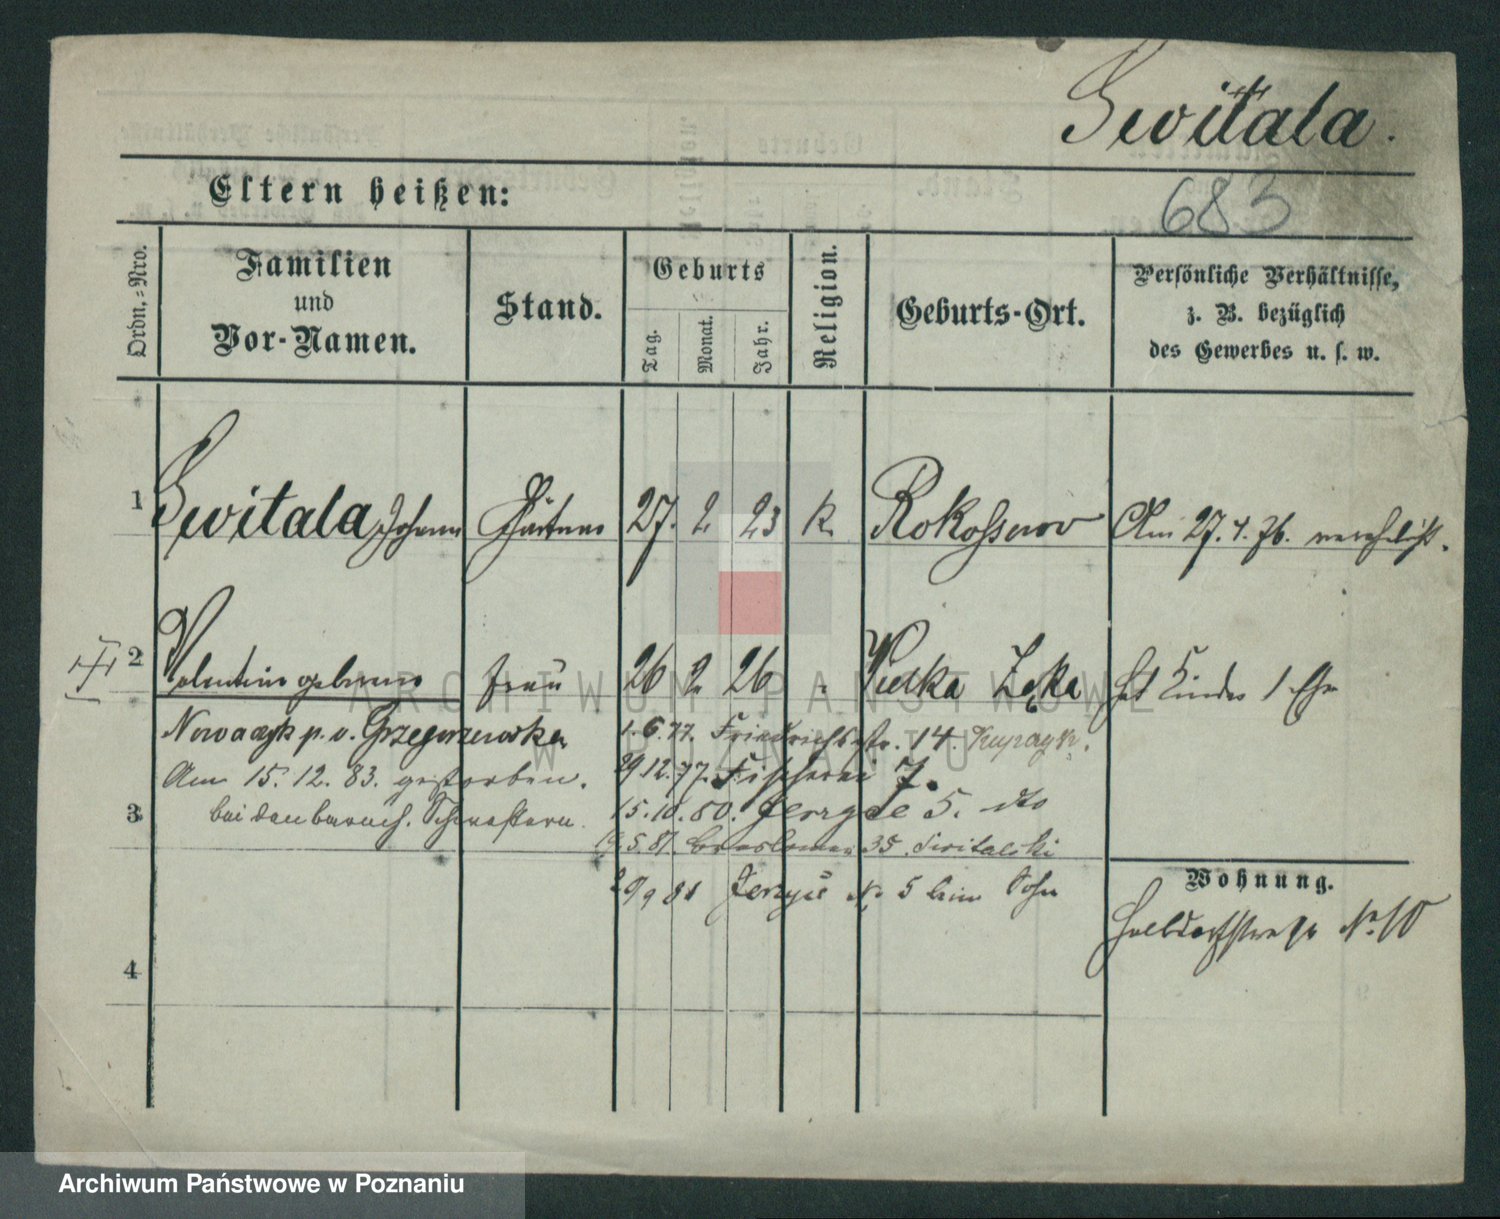 Switala.
Eltern heißen:
683
Ordn.-Nro.
Familien
und
Vor-Namen.
Stand.
Geburts
Tag.
Monat.
Jahr.
Religion.
Geburts-Ort.
Persönliche Verhältnisse,
z. B. bezüglich
des Gewerbes u. s. w.
1 Switala Johann Gärtner 27. 2 23 k Rokossowo Am 27. 4. 76. verehelicht.
2 Valentine geborene Frau 26 2 26 " Wielka Łęka hat Kinder 1 Ehe
Nowaczyk p. v. Grzegorzewska
1. 6. 77. Friedrichsstr. 14.
Am 15. 12. 83. gestorben.
29 12. 77. Fischerei 7.
3 bei den barmh. Schwestern.
15. 10. 80. Jerzyce 5. dto
5. 81. Breslauer 35. Switalski
29 9 81 Jerzyce No 5 beim Sohn
Wohnung.
Halbdorfstrasse No. 10
4
ARCHIWUM PAŃSTWOWE
W POZNANIU
Archiwum Państwowe w Poznaniu